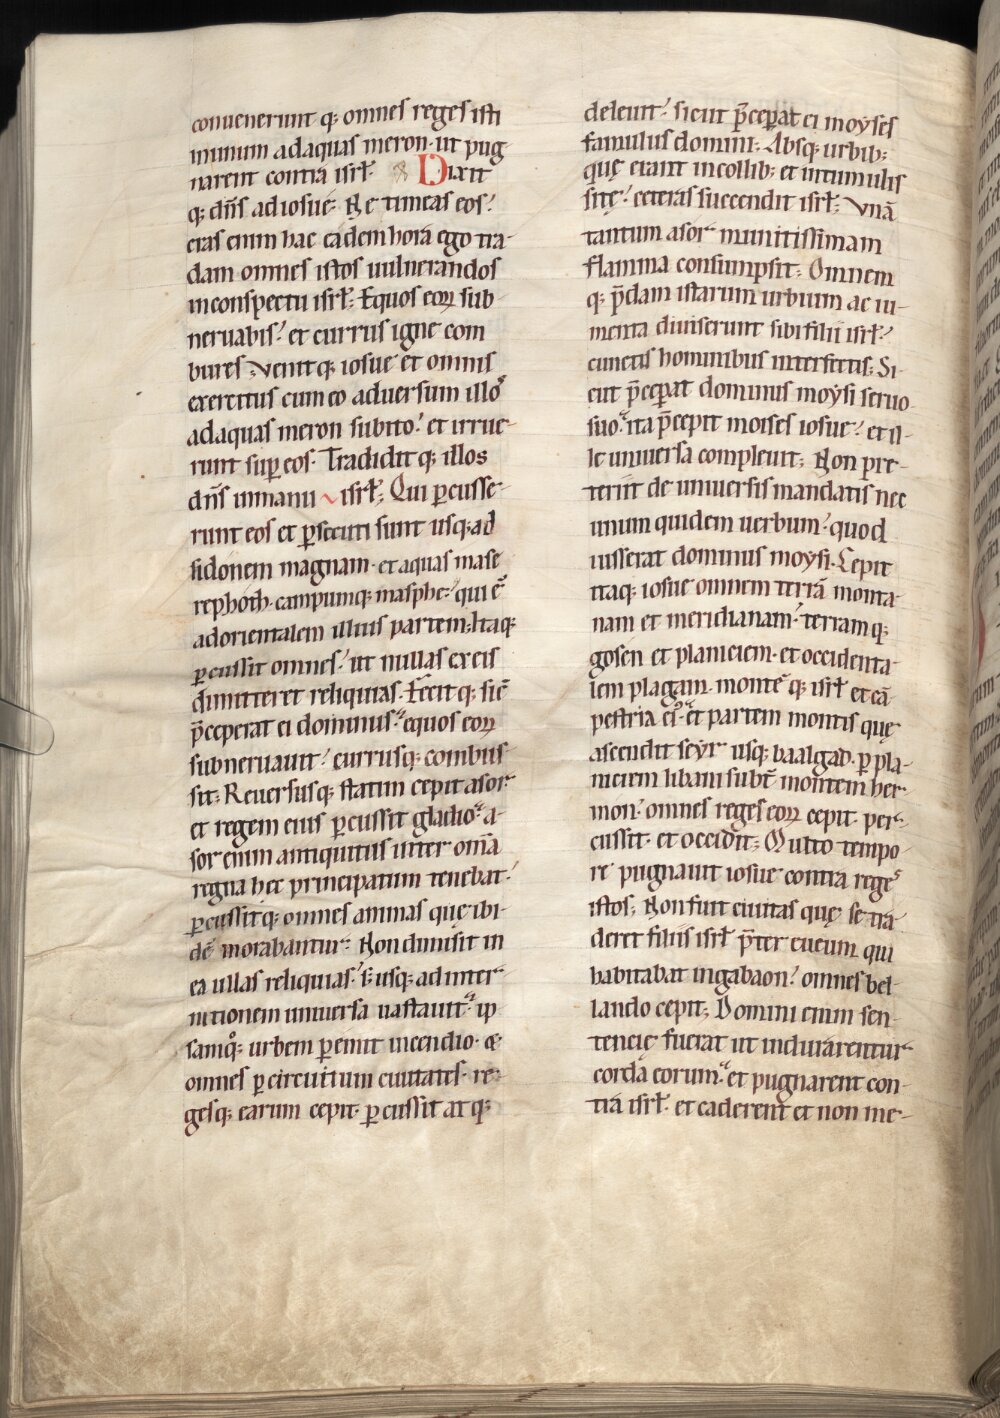 conuenerunt q; omnes reges isti
inunum adaquas meron· ut pug
narent contra isrł· Dixit
q; dñs adiosue· Ne timeas eos?
cras enim hac eadem hora ego tra-
dam omnes istos uulnerandos
inconspectu isrł; Equos eoꝝ sub-
neruabis? et currus igne com
bures; Venit q; iosue et omnis
exercitus cum eo aduersum illos
adaquas meron subito? et irrue-
runt suꝑ eos· Tradidit q; illos
dñs inmanu isrł; Qui ꝑcusse-
runt eos et ꝑsecuti sunt usq; ad
sidonem magnam· et aquas mase
rephoth· campumq; masphe; qui ē
adorientalem illius partem; Itaq;
ꝑcussit omnes? ut nullas ex eis
dimitteret reliquias· Fecit q; sic̄
p̄ceperat ei dominus; equos eoꝝ
subneruauit? currusq; combus-
sit; Reuersusq; statim cepit asor·
et regem eius ꝑcussit gladio; a-
sor enim antiquitus inter om̄ia
regna hec principatum tenebat·
ꝑcussitq; omnes animas quę ibi-
dē morabantur; Non dimisit in
ea ullas reliquias? s; usq; ad inter
nitionem uniuersa uastauit; ip
samq; urbem ꝑemit incendio· &
omnes ꝑ circuitum ciuitates· re-
gesq; earum cepit· ꝑcussit at q;
deleuit? sicut p̄ceꝑat ei moyses
famulus domini; Absq; urbib;
quę erant incollib; et intumulis
sitę? ceteras succendit isrł; Vnā
tantum asor munitissimam
flamma consumpsit; Omnem
q; p̄dam istarum urbium ac iu-
menta diuiserunt sibi filii isrł?
cunctis hominibus interfectis; Si-
cut p̄ceꝑat dominus moysi seruo
suo; ita p̄cepit moises iosue? et il-
le uniuersa compleuit; Non pre-
teriit de uniuersis mandatis nec
unum quidem uerbum? quod
iusserat dominus moysi· Cepit
itaq; iosue omnem terrā monta-
nam et meridianam? terram q;
gosen et planiciem· et occidenta
lem plagam· montē q; isrł et cā-
pestria ei; et partem montis quę
ascendit seyr usq; baalgad· ꝑ pla-
niciem libani subt̄ montem her-
mon· omnes reges eoꝝ cepit· per-
cussit· et occidit; Multo tempo
re pugnauit iosue contra reges
istos; Non fuit ciuitas quę se tra-
deret filiis isrł p̄ter eueum qui
habitabat ingabaon? omnes bel-
lando cepit; Domini enim sen-
tencię fuerat ut indurarentur
corda eorum; et pugnarent con-
tra isrł· et caderent et non me-